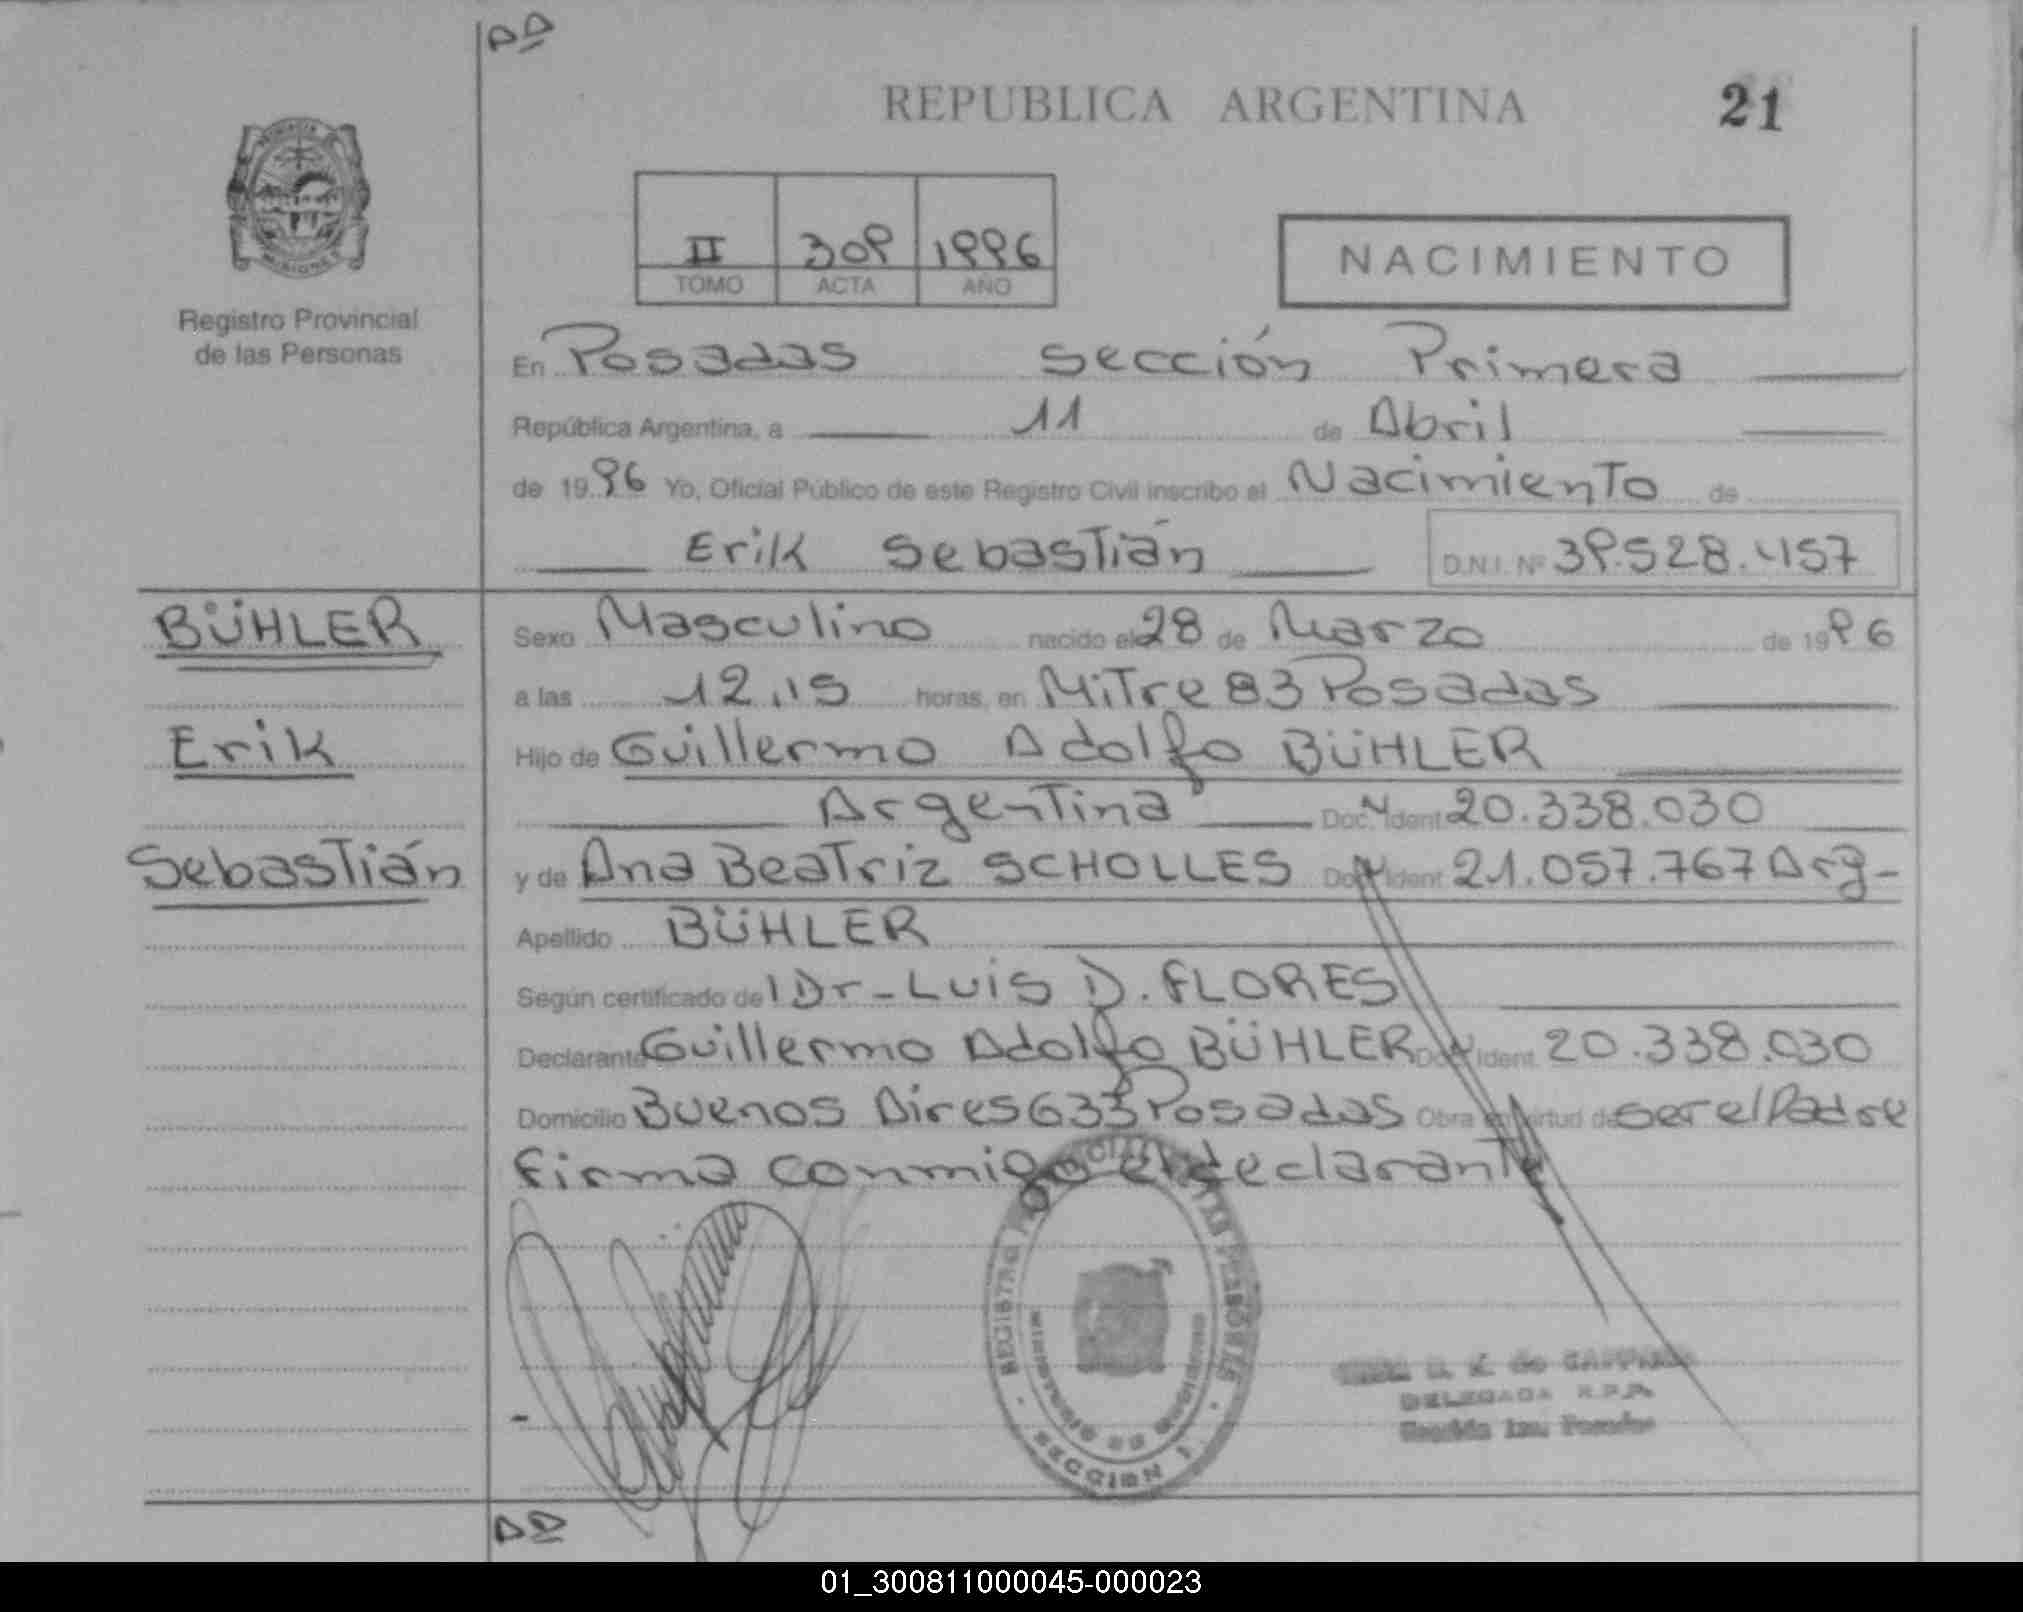 DD
REPUBLICA ARGENTINA 21
II 309 1996
TOMO ACTA AÑO
NACIMIENTO
MISIONES
Registro Provincial
de las Personas
En Posadas sección Primera
República Argentina, a 11 de Abril
de 1996 Yo, Oficial Público de este Registro Civil inscribo el Nacimiento de
Erik Sebastián D.N.I. Nº 39.528.457
BÜHLER
Erik
Sebastián
Sexo Masculino nacido el 28 de Marzo de 1996
a las 12.15 horas, en Mitre 83 Posadas
Hijo de Guillermo Adolfo BÜHLER
Argentina Doc. Ident 20.338.030
y de Ana Beatriz SCHOLLES Doc. Ident 21.057.767 Arg-
Apellido BÜHLER
Según certificado del Dr- LUIS D. FLORES
Declarante Guillermo Adolfo BÜHLER Doc. Ident. 20.338.030
Domicilio Buenos Aires 633 Posadas Obra en virtud de ser el Padre
Firma conmigo el declarante
REGISTRO PERSONAS
SECCION 1
DELEGADA R.P.P.
Sección 1ra. Posadas
DD
01_300811000045-000023